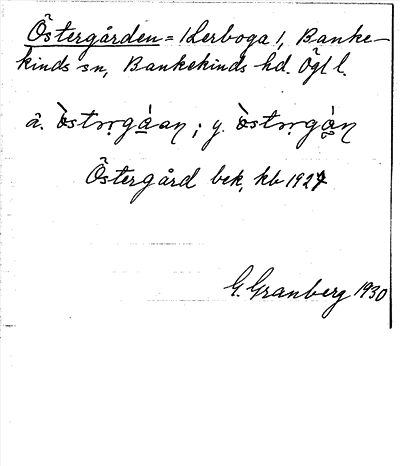 Östergården = 1 Lerboga 1, Banke-
kinds sn, Bankekinds hd. Ögl l.
ä. y.
Östergård bek. kb 1927
G. Granberg 1930